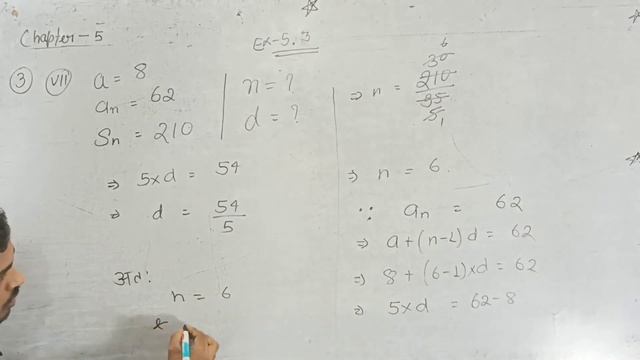 Chapter-5
Ex-5.3
③ (VII) a = 8
an = 62
Sn = 210
n = ?
d = ?
⇒ 5×d = 54
⇒ d = 54/5
अतः
n = 6
&
⇒ n = 210/35
30 6
5 1
⇒ n = 6.
∵ an = 62
⇒ a+(n-1)d = 62
⇒ 8+(6-1)×d = 62
⇒ 5×d = 62-8